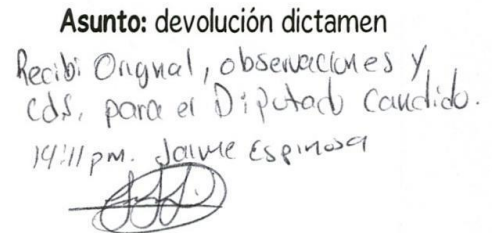 Asunto: devolución dictamen
Recibi Original, observaciones y
cds, para el Diputado Candido.
14:11 pm. Jaime Espinosa